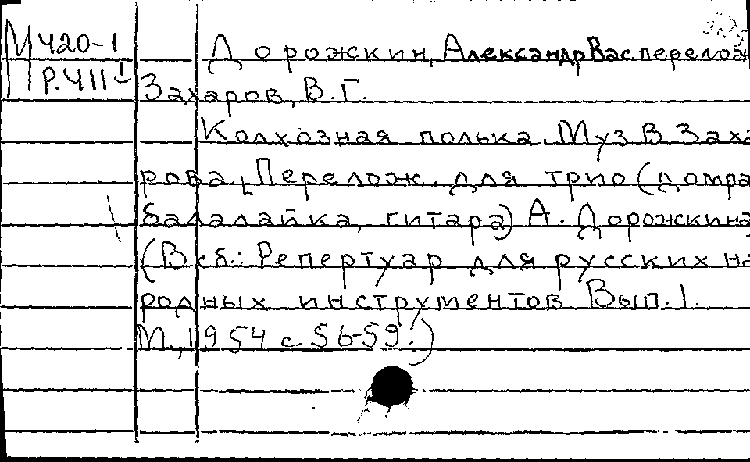 М 420-1
Р.411
Дорожкин, Александр Вас. перелож
Захаров, В.Г.
Колхозная полька. Муз В Заха
рова. Перелож. для трио (домра
балалайка, гитара) А. Дорожкина
(В сб.: Репертуар для русских на
родных инструментов Вып. 1.
М., 1954 с. 56-59.)